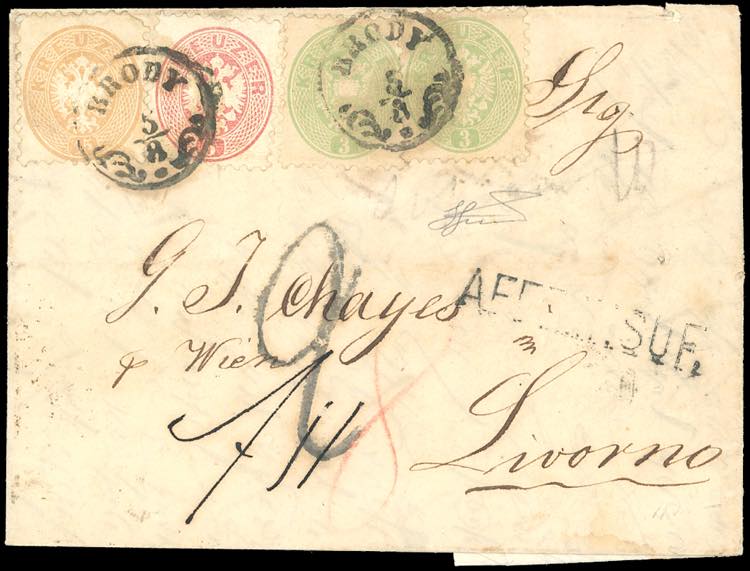 KREUZER
KREUZER
5
KREUZER
3
KREUZER
3
BRODY
5/8
BRODY
5/8
Sig
G. J. Chayes
p Wien
Livorno